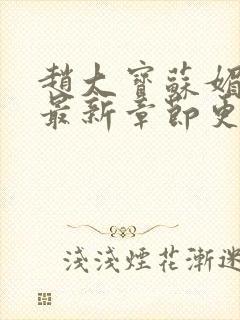 趙大寶蘇媚
最新章節更
淺淺煙花漸迷